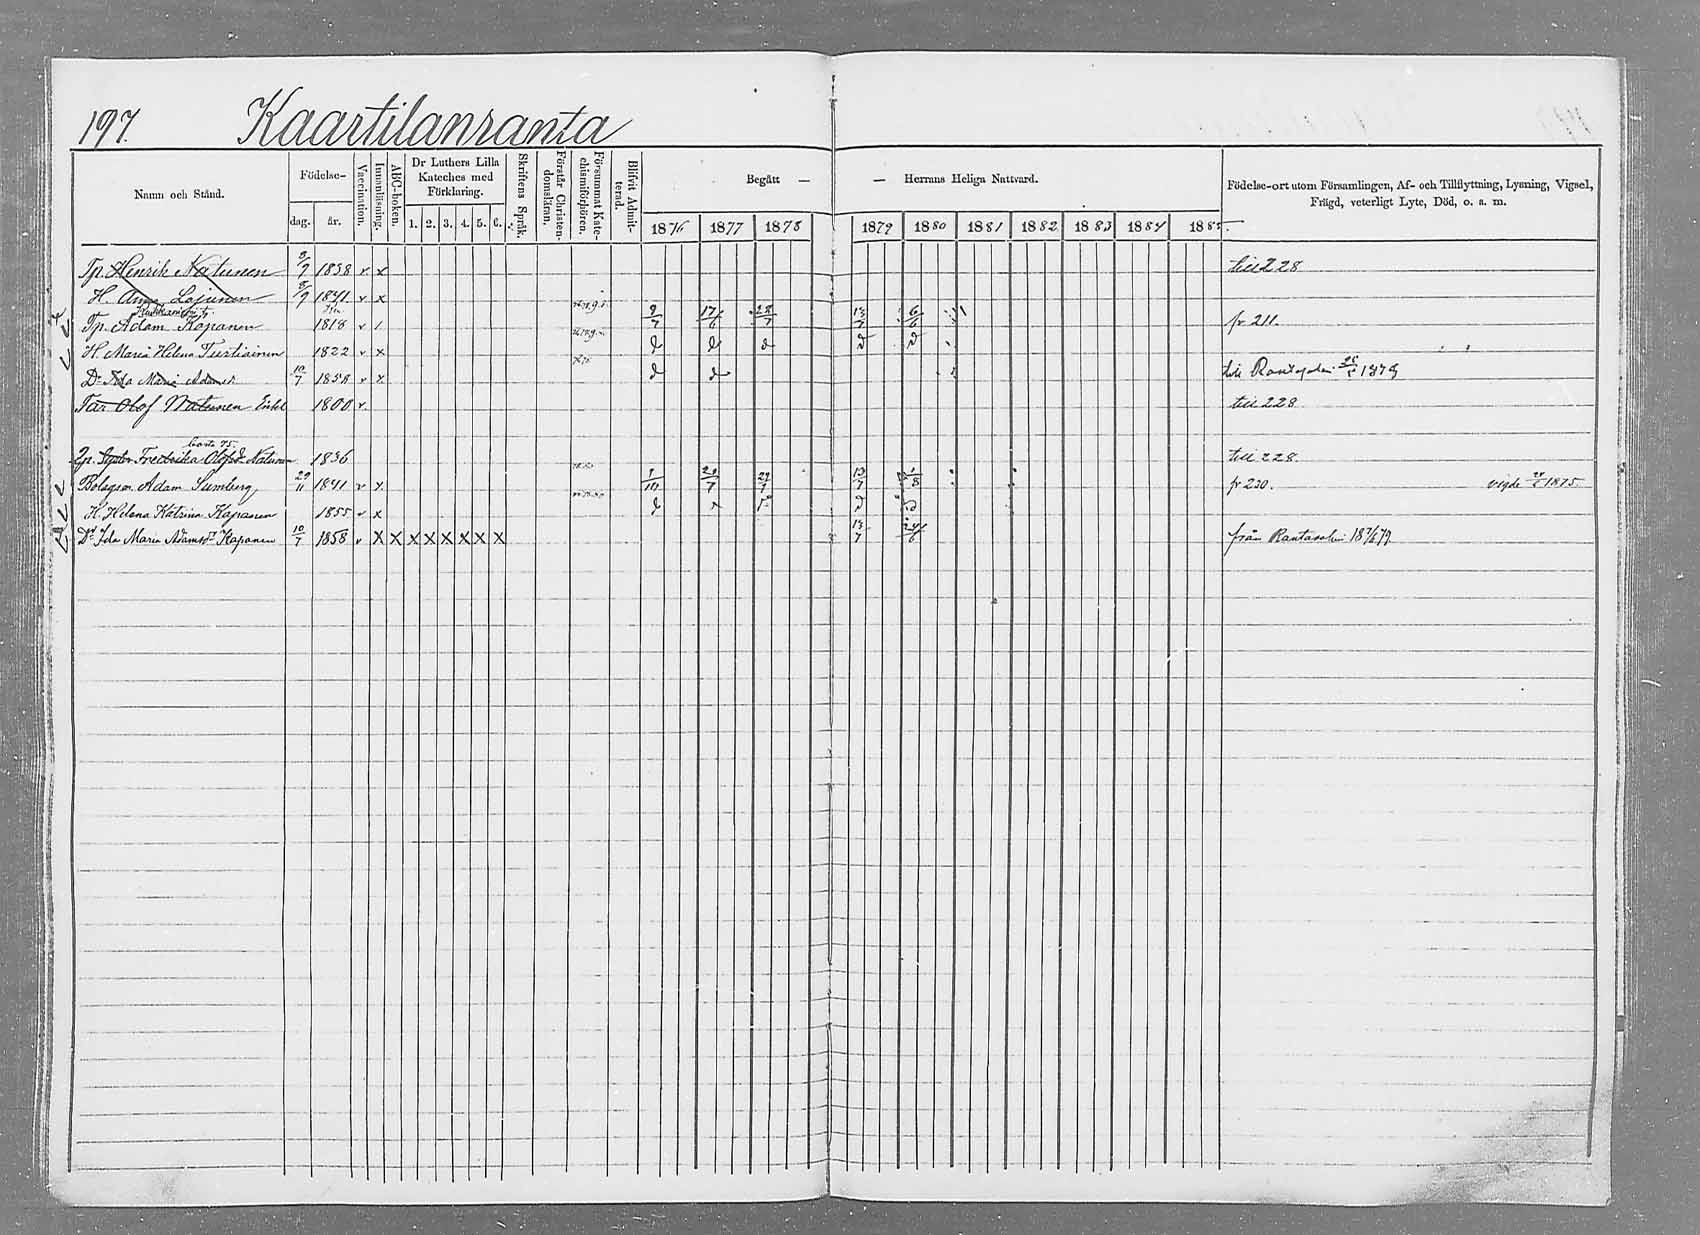 197. Kaartilanranta
Namn och Stånd. Födelse- dag. år. Vaccination. Innanläsning. ABC-boken. Dr Luthers Lilla Kateches med Förklaring. 1. 2. 3. 4. 5. 6. Skriftens Språk. Förstår Christendomsläran. Försummat Katechismiförhören. Blifvit Admitterad. Begått — — Herrans Heliga Nattvard. 1876 1877 1878 1879 1880 1881 1882 1883 1884 1885 Födelse-ort utom Församlingen, Af- och Tillflyttning, Lysning, Vigsel, Frägd, veterligt Lyte, Död, o. a. m.
Tp. Henrik Natunen 3/7 1838 v x till 228
H. Anna Lojunen 8/9 1841 v x
Tp. Adam Kapanen 1818 v 1 9/7 17/6 28/7 13/7 6/6 fr 211.
H. Maria Helena Turtiainen 1822 v x d d d d d
Dr Ida Maria Adamsd 10/7 1858 v x d d till Rantasalmi 1879
Far Olof Natunen Enkl 1800 v. till 228
borta 75.
Tp. Syster Fredrika Olofsd Natunen 1836 till 228.
Bolagsm. Adam Sumberg 29/11 1841 v x 29/7 13/7 fr 230. vigde 1875
H. Helena Katrina Kapanen 1855 v x
Dr Ida Maria Adamsdr Kapanen 10/7 1858 v x x x x x x x x 13/7 från Rantasalmi 18 7/6 79.